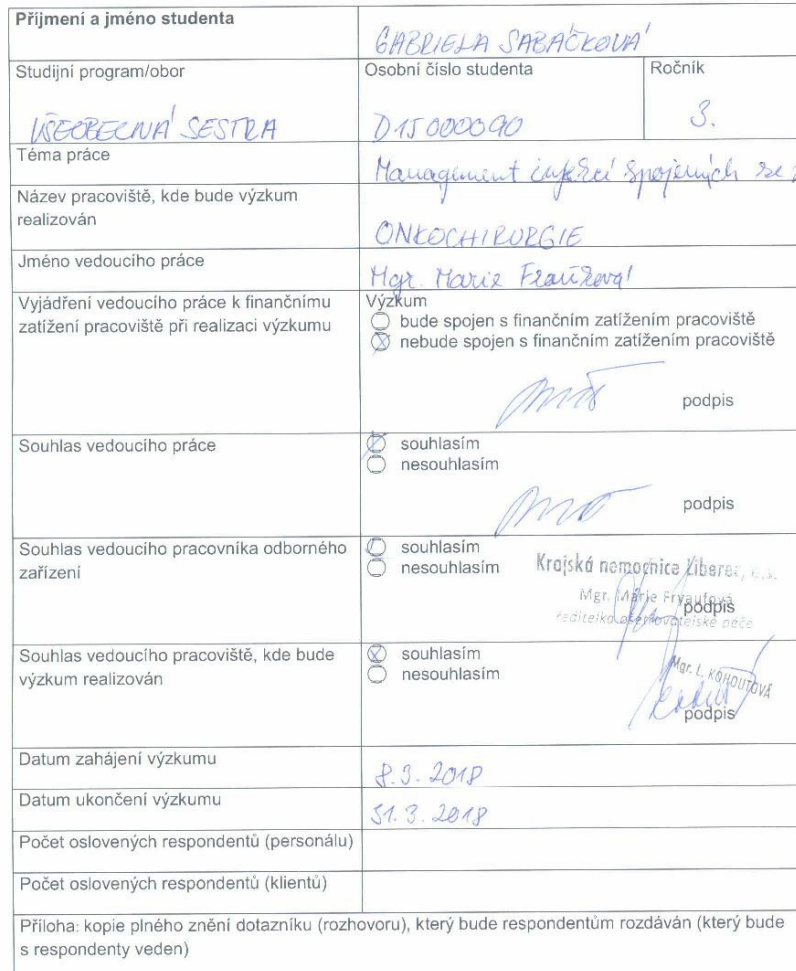 Příjmení a jméno studenta
GABRIELA SABAČKOVÁ
Studijní program/obor
Osobní číslo studenta
Ročník
VŠEOBECNÁ SESTRA
D15000090
3.
Téma práce
Management infekcí spojených se
Název pracoviště, kde bude výzkum
realizován
ONKOCHIRURGIE
Jméno vedoucího práce
Mgr. Marie
Vyjádření vedoucího práce k finančnímu
zatížení pracoviště při realizaci výzkumu
Výzkum
bude spojen s finančním zatížením pracoviště
nebude spojen s finančním zatížením pracoviště
podpis
Souhlas vedoucího práce
souhlasím
nesouhlasím
podpis
Souhlas vedoucího pracovníka odborného
zařízení
souhlasím
nesouhlasím
Krajská nemocnice Liberec, a.s.
Mgr. Marie Fryaufová
ředitelka ošetřovatelské péče
podpis
Souhlas vedoucího pracoviště, kde bude
výzkum realizován
souhlasím
nesouhlasím
Mgr. L. KOHOUTOVÁ
podpis
Datum zahájení výzkumu
8.3.2018
Datum ukončení výzkumu
31.3.2018
Počet oslovených respondentů (personálu)
Počet oslovených respondentů (klientů)
Příloha: kopie plného znění dotazníku (rozhovoru), který bude respondentům rozdáván (který bude
s respondenty veden)